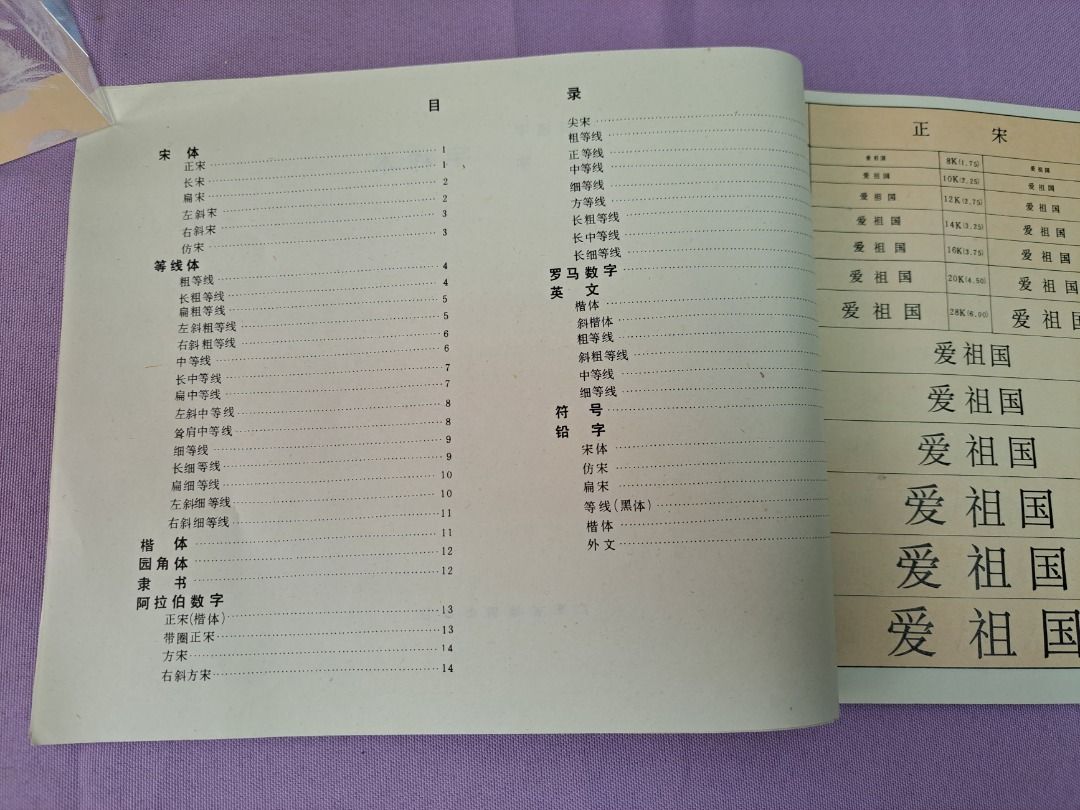 目 录
宋 体 1
正宋 1
长宋 2
扁宋 2
左斜宋 3
右斜宋 3
仿宋
等线体 4
粗等线 4
长粗等线 5
扁粗等线 5
左斜粗等线 6
右斜粗等线 6
中等线 7
长中等线 7
扁中等线 8
左斜中等线 8
耸肩中等线 9
细等线 9
长细等线 10
扁细等线 10
左斜细等线 11
右斜细等线 11
楷 体 12
园角体 12
隶 书
阿拉伯数字
正宋(楷体) 13
带圈正宋 13
方宋 14
右斜方宋 14
尖宋
粗等线
正等线
中等线
细等线
方等线
长粗等线
长中等线
长细等线
罗马数字
英 文
楷体
斜楷体
粗等线
斜粗等线
中等线
细等线
符 号
铅 字
宋体
仿宋
扁宋
等线(黑体)
楷体
外文
正 宋
爱祖国 8K(1.75) 爱祖国
爱祖国 10K(2.25) 爱祖国
爱祖国 12K(2.75) 爱祖国
爱祖国 14K(3.25) 爱祖国
爱祖国 16K(3.75) 爱祖国
爱祖国 20K(4.50) 爱祖国
爱祖国 28K(6.00) 爱祖国
爱祖国
爱祖国
爱祖国
爱祖国
爱祖国
爱祖国